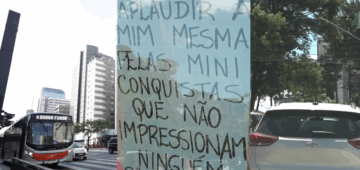 APLAUDIR A
MIM MESMA
PELAS MINI
CONQUISTAS
QUE NÃO
IMPRESSIONAM
NINGUÉM